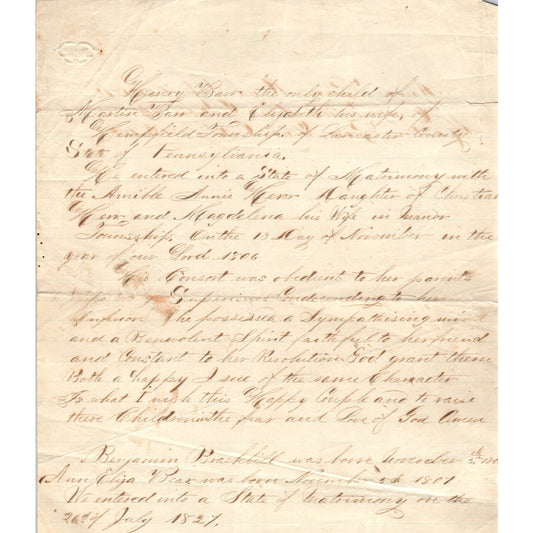 Henry Barr the only child of
Martin Barr and Elizabeth his wife, of
Hempfield Township, of Lancaster County
State of Pennsylvania.
He entered into a State of Matrimony with
the Amible Annie Herr Daughter of Christian
Herr and Magdelena his Wife in Manor
Township. On the 13 Day of November in the
year of our Lord 1806
His Consort was obedient to her parents
Superiors Condescending to her
She possessed a Sympathising mind
and a Benevolent Spirit faithful to her friend
and Constant to her Resolution God grant them
Both a happy I sue of the same Character
Is what I wish this Happy Couple and to raise
there Children in the fear and Love of God Amen
Benjamin Brackbill was born November 5th
Ann Eliza Bear was born November 5th 1801
We entered into a State of Matrimony on the
26th of July 1827.